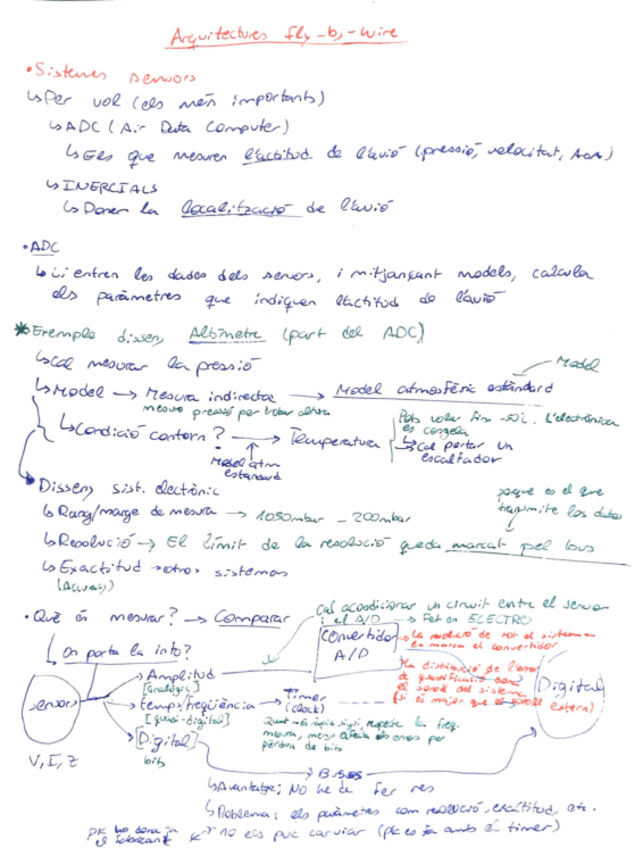 Arquitectures fly-by-wire
•Sistemes sensors
↳Per vol (els més importants)
↳ADC (Air Data Computer)
↳Els que mesuren l'actitud de l'avió (pressió, velocitat, AoA)
↳INERCIALS
↳Donen la localització de l'avió
•ADC
↳Li entren les dades dels sensors, i mitjançant models, calcula
els paràmetres que indiquen l'actitud de l'avió
*Exemple disseny Altímetre (part del ADC)
↳Cal mesurar la pressió
Model
↳Model → Mesura indirecta → Model atmosfèric estàndard
mesuro pressió per trobar altura
↳Condició contorn? → Temperatura
Model atm
estandard
Pots volar fins -50i. L'electrònica
es congela
↳Cal portar un
escalfador
Disseny sist. electrònic
↳Rang/marge de mesura → 1050mbar - 200mbar
perque es el que
transmite los datos
↳Resolució → El límit de la resolució queda marcat pel bus
↳Exactitud → otros sistemas
(Accuracy)
•Què és mesurar? → Comparar
Cal acondicionar un circuit entre el sensor
i el A/D → Fet en ELECTRO
↳On porta la info?
Convertidor
A/D
→La resolució de tot el sistema
en marca el convertidor
de quantificació
el soroll del sistema
(si és major que el soroll
extern)
sensors
V, I, Z
Amplitud
[analògic]
temps/freqüència → Timer
[quasi-digital] (clock)
[Digital]
bits
Quant més ràpid sigui, respecte la freq.
mesura, menys errors per
pèrdua de bits
Digital
→ Buses
↳Avantatge: No he de fer res
↳Problema: els paràmetres com resolució, exactitud, etc.
no els puc canviar (pk es fa amb el timer)
pk ho dona ja
el fabricant